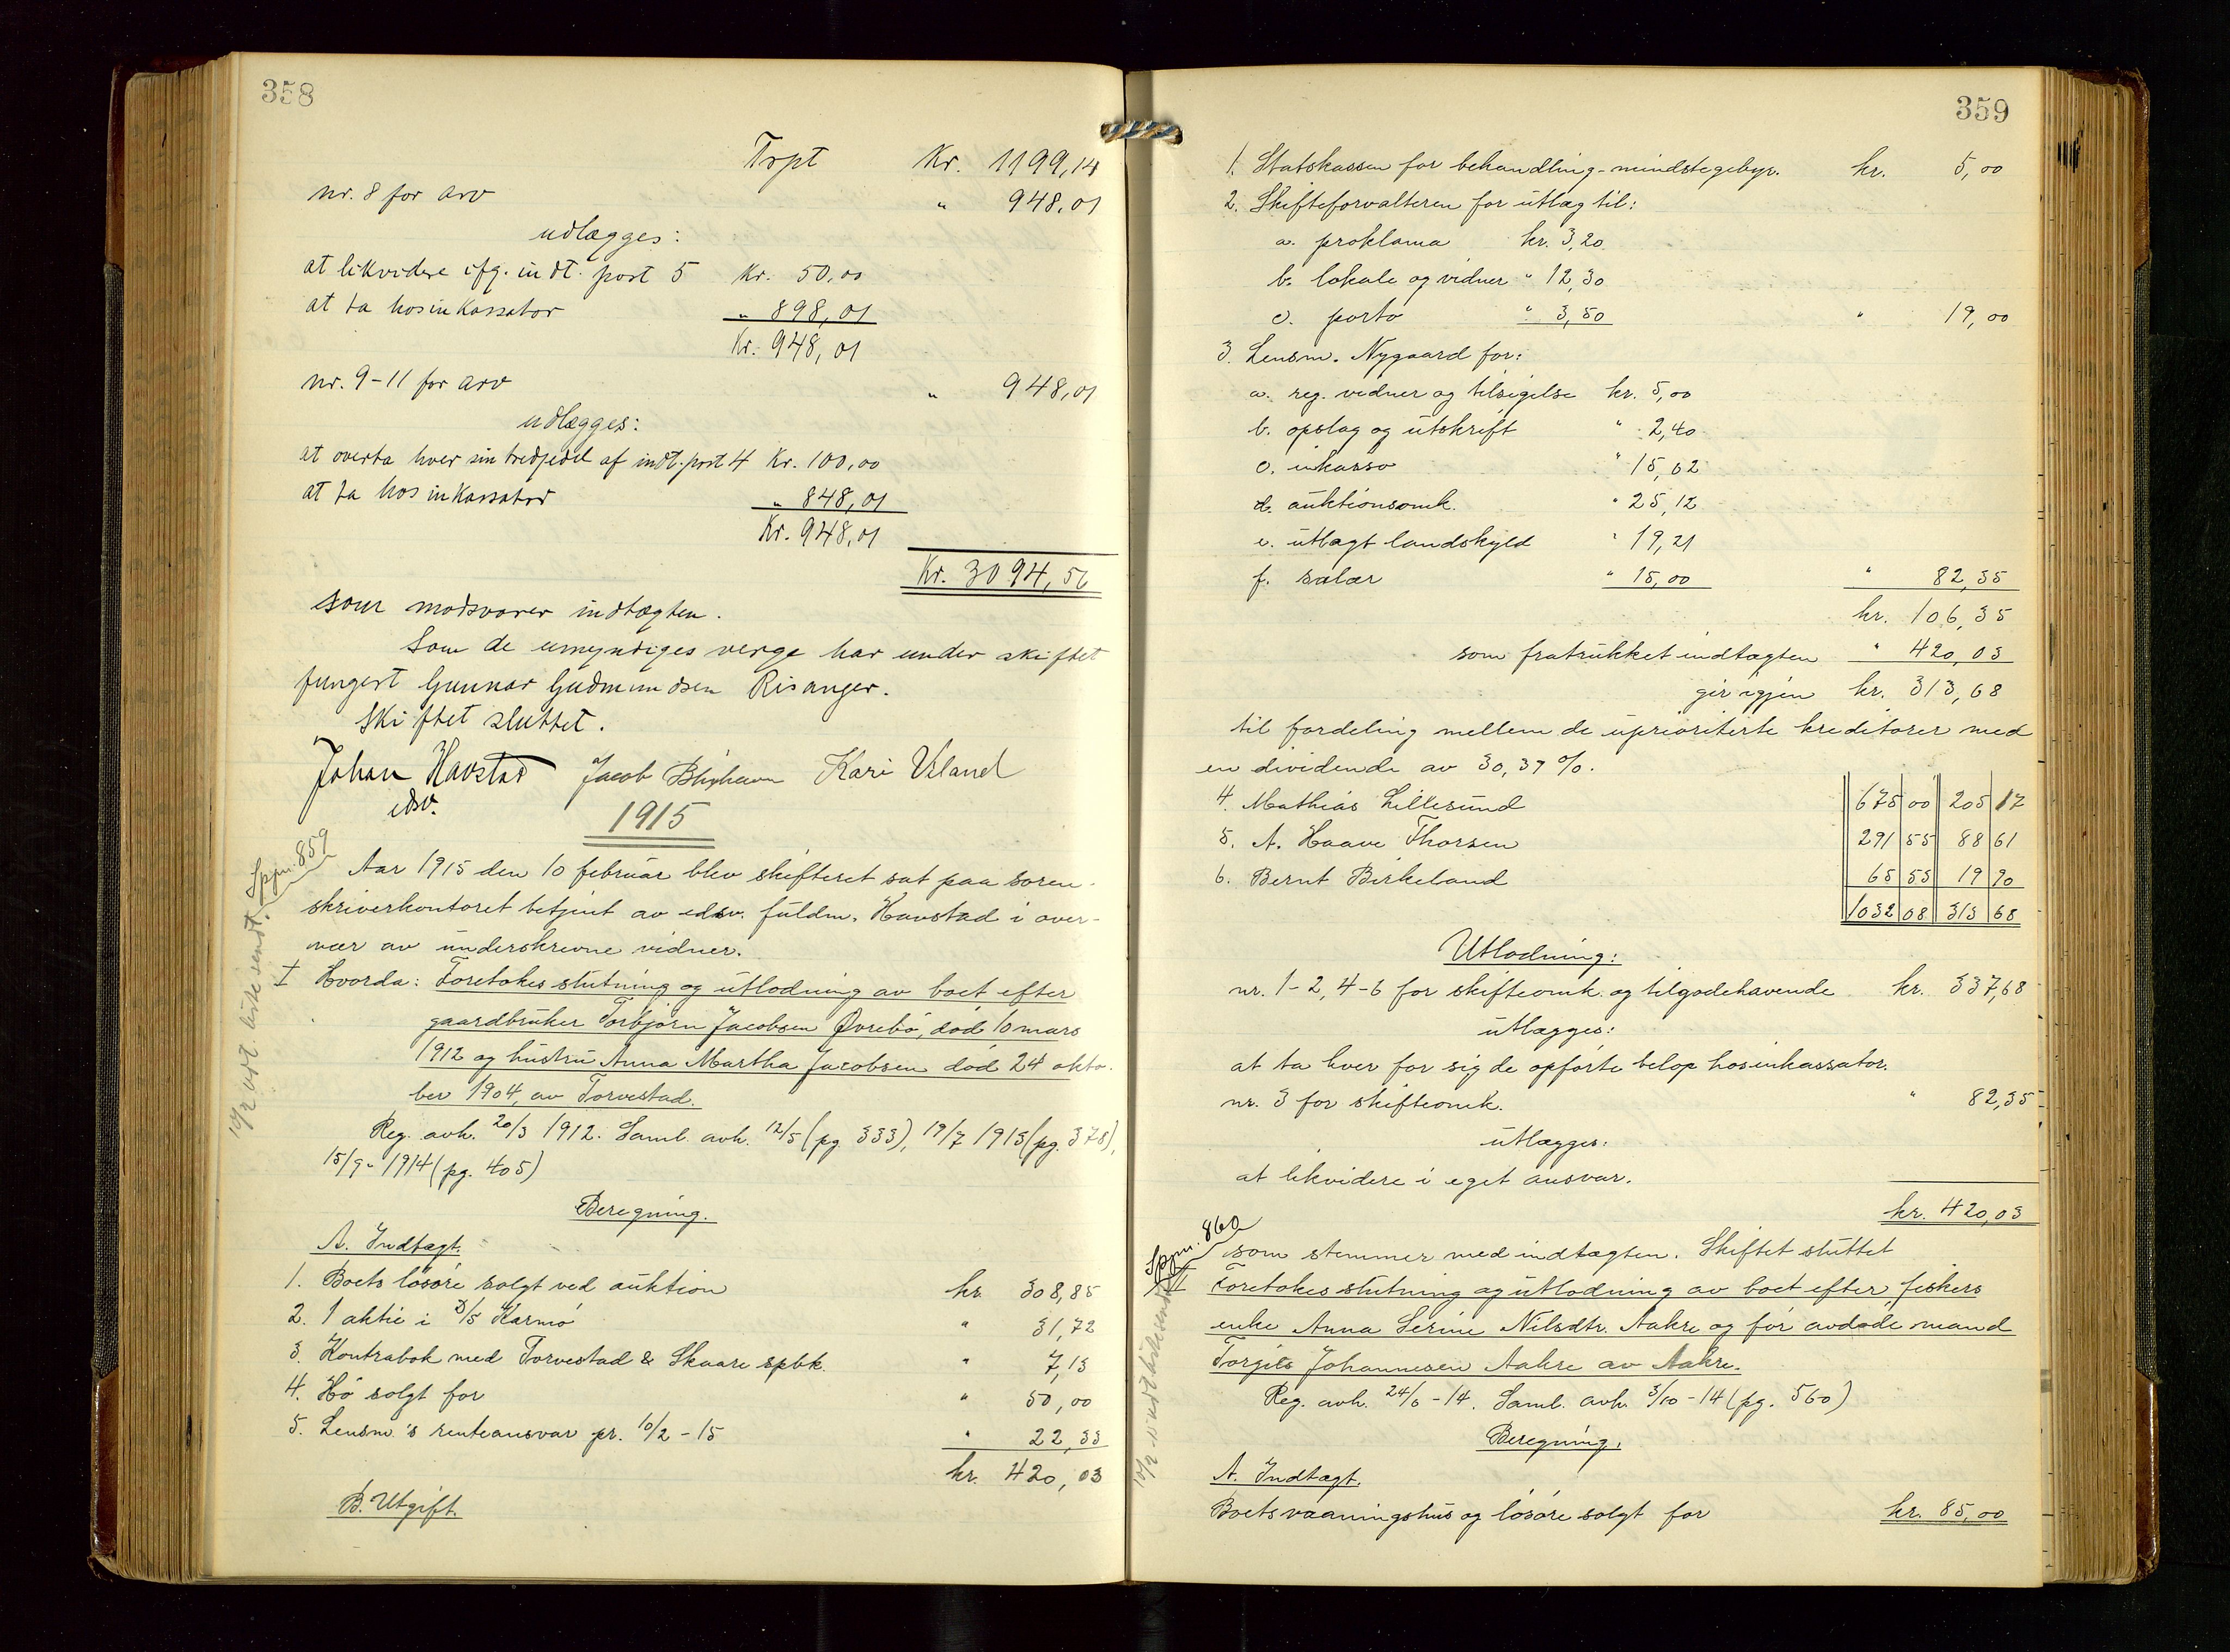 358
Trpt Kr. 1199,14
nr. 8 for arv " 948,01
udlægges:
at likvidere ifg. indt. post 5 Kr. 50,00
at ta hos inkassator " 898,01
Kr. 948,01
nr. 9-11 for arv " 948,01
udlægges:
at overta hver sin tredjedel af indt. post 4 Kr. 100,00
at ta hos inkassator " 848,01
Kr. 948,01
Kr. 3094,56
som modsvarer indtægten.
Som de umyndiges verge har under skiftet
fungert Gunnar Gudmundsen Risanger.
Skiftet sluttet.
Johan Havstad Jacob Kari
edsv.
1915
Spjn. 859
Aar 1915 den 10 februar blev skifteret sat paa soren-
skriverkontoret betjent av edsv. fuldm. Havstad i over-
vær av underskrevne vidner.
I Hvorda: Foretokes slutning og utlodning av boet efter
gaardbruker Torbjørn Jacobsen Øvrebö, död 10 mars
1912 og hustru Anna Martha Jacobsen död 24 okto-
ber 1904, av Torvestad.
Reg. avh. 20/3 1912. Saml. avh. 12/5 (pg 333), 19/7 1913 (pg. 378),
15/9 - 1914 (pg. 405)
Beregning.
A. Indtægt.
1. Boets lösöre solgt ved auktion kr. 308,85
2. 1 aktie i D/S Karmö " 31,72
3. Kontrabok med Torvestad & Skaare spbk. " 7,13
4. Hö solgt for " 50,00
5. Lensm's renteansvar pr. 10/2 - 15 " 22,33
kr. 420,03
B. Utgift.
359
1. Statskassen for behandling - mindstegebyr. kr. 5,00
2. Skifteforvalteren for utlæg til:
a. proklama kr. 3,20
b. lokale og vidner " 12,30
c. porto " 3,50 " 19,00
3. Lensm. Nygaard for:
a. reg. vidner og tilsigelse kr. 5,00
b. opslag og utskrift " 2,40
c. inkasso " 15,62
d. auktionsomk. " 25,12
e. utlagt landskyld " 19,21
f. salær " 15,00 " 82,35
kr. 106,35
som fratrukket indtægten " 420,03
gir igjen kr. 313,68
til fordeling mellem de uprioriterte kreditorer med
en dividende av 30,39 %.
4. Mathias Lillesund 675 00 205 17
5. A. Haave Thorsen 291 55 88 61
6. Bernt Birkeland 65 53 19 90
1032 08 313 68
Utlodning:
nr. 1-2, 4-6 for skifteomk. og tilgodehavende kr. 337,68
utlægges:
at ta hver for sig de opförte belöp hos inkassator.
nr. 3 for skifteomk. " 82,35
utlægges:
at likvidere i eget ansvar.
kr. 420,03
Spjn. 860
som stemmer med indtægten. Skiftet sluttet
II Foretokes slutning og utlodning av boet efter fiskers
enke Anna Serine Nilsdtr. Aakre og för avdöde mand
Torgils Johannesen Aakre av Aakre.
Reg. avh. 24/6 - 14. Saml. avh. 3/10 - 14 (pg. 560)
Beregning.
A. Indtægt.
Boets vaaningshus og lösöre solgt for kr. 85,00